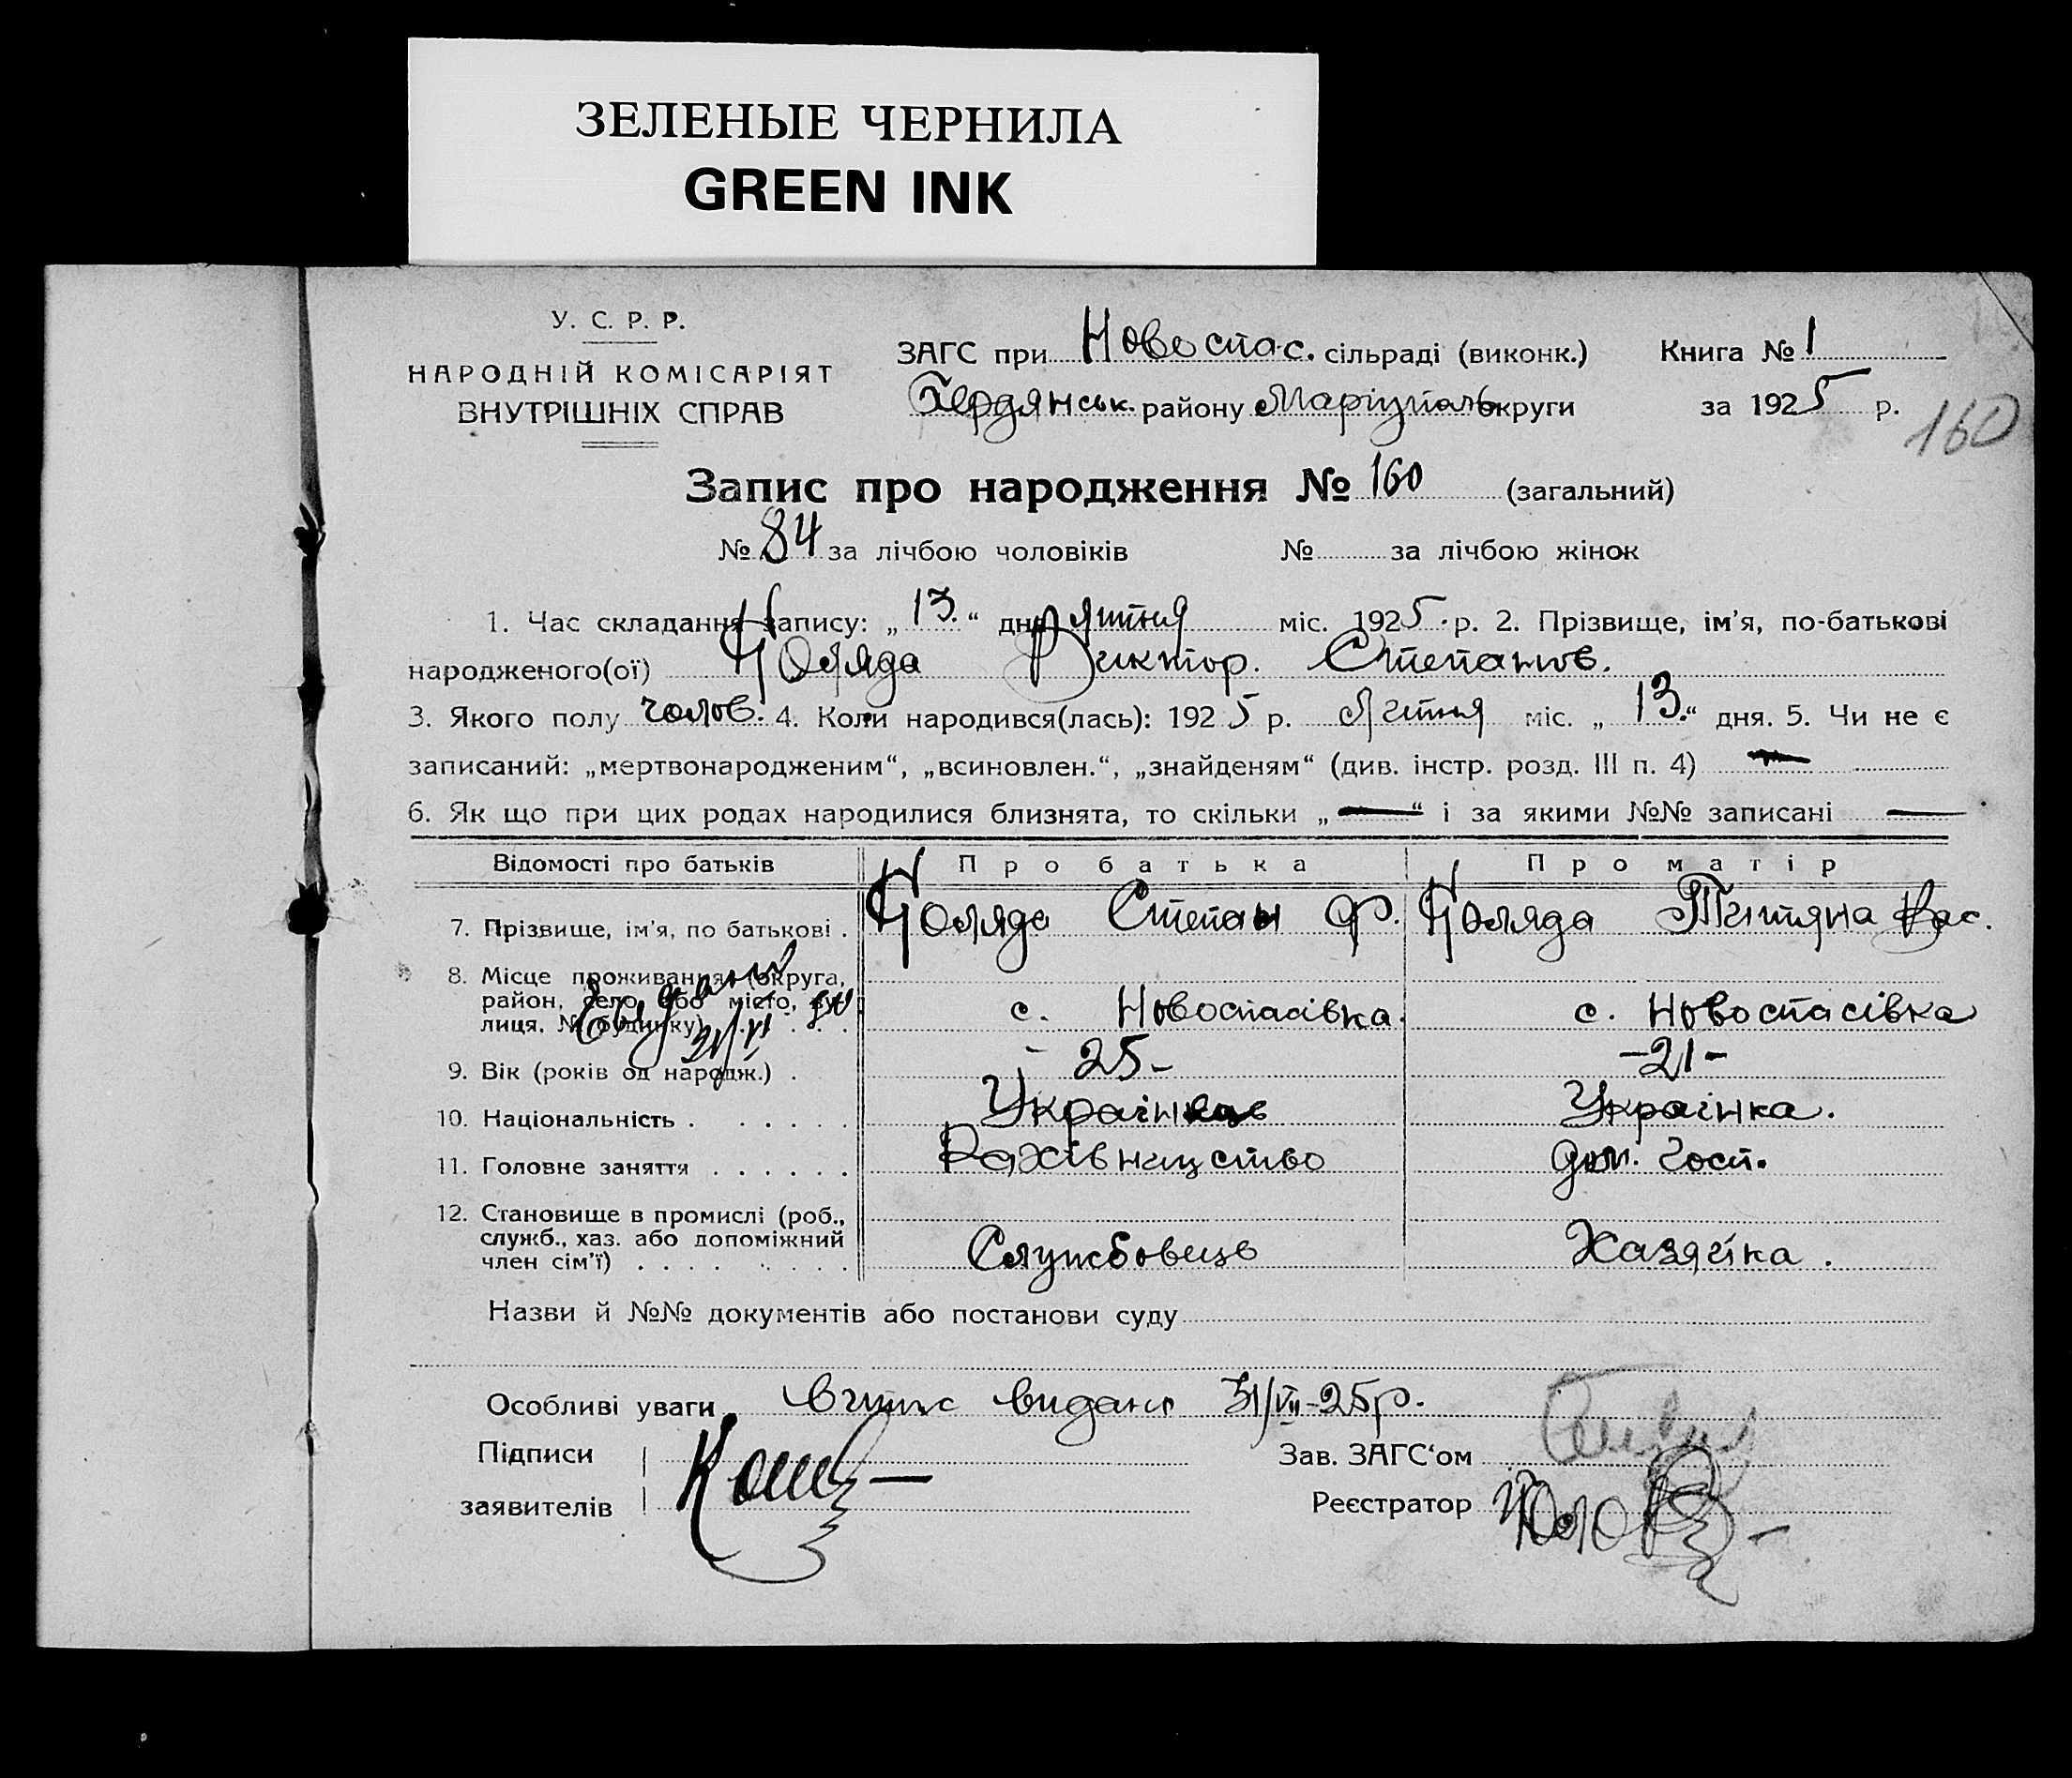 ЗЕЛЕНЫЕ ЧЕРНИЛА
GREEN INK
У. С. Р. Р.
НАРОДНІЙ КОМІСАРІЯТ
ВНУТРІШНІХ СПРАВ
ЗАГС при Новоспас. сільраді (виконк.) Книга № 1
Бердянськ. району Маріупіль округи за 1925 р.
160
Запис про народження № 160 (загальний)
№ 84 за лічбою чоловіків № за лічбою жінок
1. Час складання запису: „13.“ дня міс. 1925 р. 2. Прізвище, ім'я, по-батькові
народженого(ої) Коляда Виктор. Степанов.
3. Якого полу чолов. 4. Коли народився(лась): 1925 р. міс. „13.“ дня. 5. Чи не є
записаний: „мертвонародженим“, „всиновлен.“, „знайденям“ (див. інстр. розд. III п. 4) —
6. Як що при цих родах народилися близнята, то скільки „—“ і за якими №№ записані —
Відомості про батьків Про батька Про матір
7. Прізвище, ім'я, по батькові . Коляда Степан Ф. Коляда Титяна Вас.
8. Місце проживання (округа,
район, село або місто, ву-
лиця, № будинку) . . . с. Новоспасівка. с. Новоспасівка
9. Вік (років од народж.) . - 25 - - 21 -
10. Національність . . . . . . Українець Українка.
11. Головне заняття . . . . . . Рахівництво дом. госп.
12. Становище в промислі (роб.,
служб., хаз. або допоміжний
член сім'ї) . . . . . . . . . Службовець Хазяйка.
Назви й №№ документів або постанови суду
Особливі уваги видано 31/VII-25р.
Підписи
заявителів
Зав. ЗАГС‘ом
Реєстратор